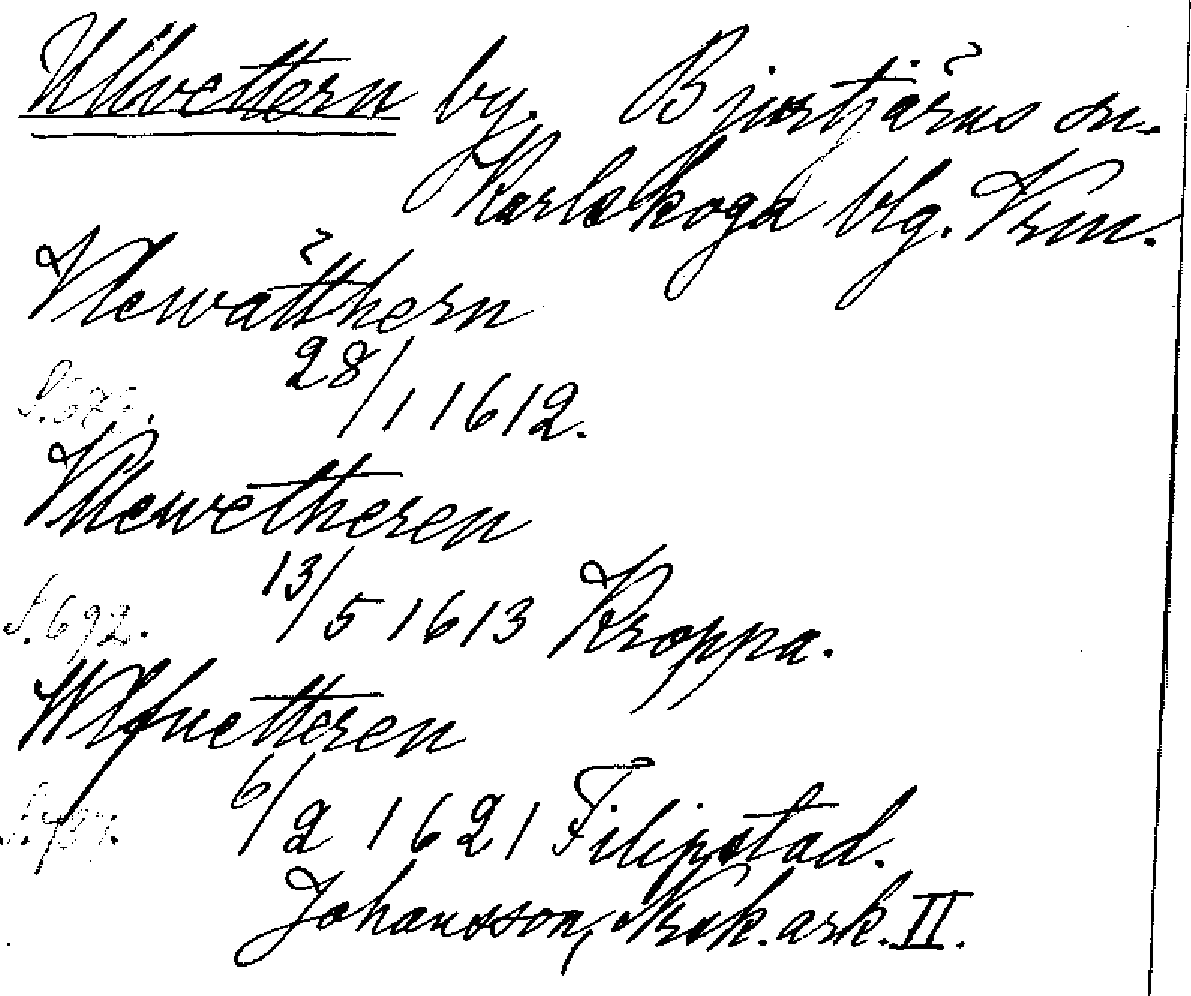 Ullvettern by. Bjurtjärns sn.
Karlskoga blg. Vrm.
Vlewätthern
28/1 1612.
Vllewetheren
S. 692. 13/5 1613 Kroppa.
Wlfuetteren
6/2 1621 Filipstad.
Johansson, Nork. ark. II.